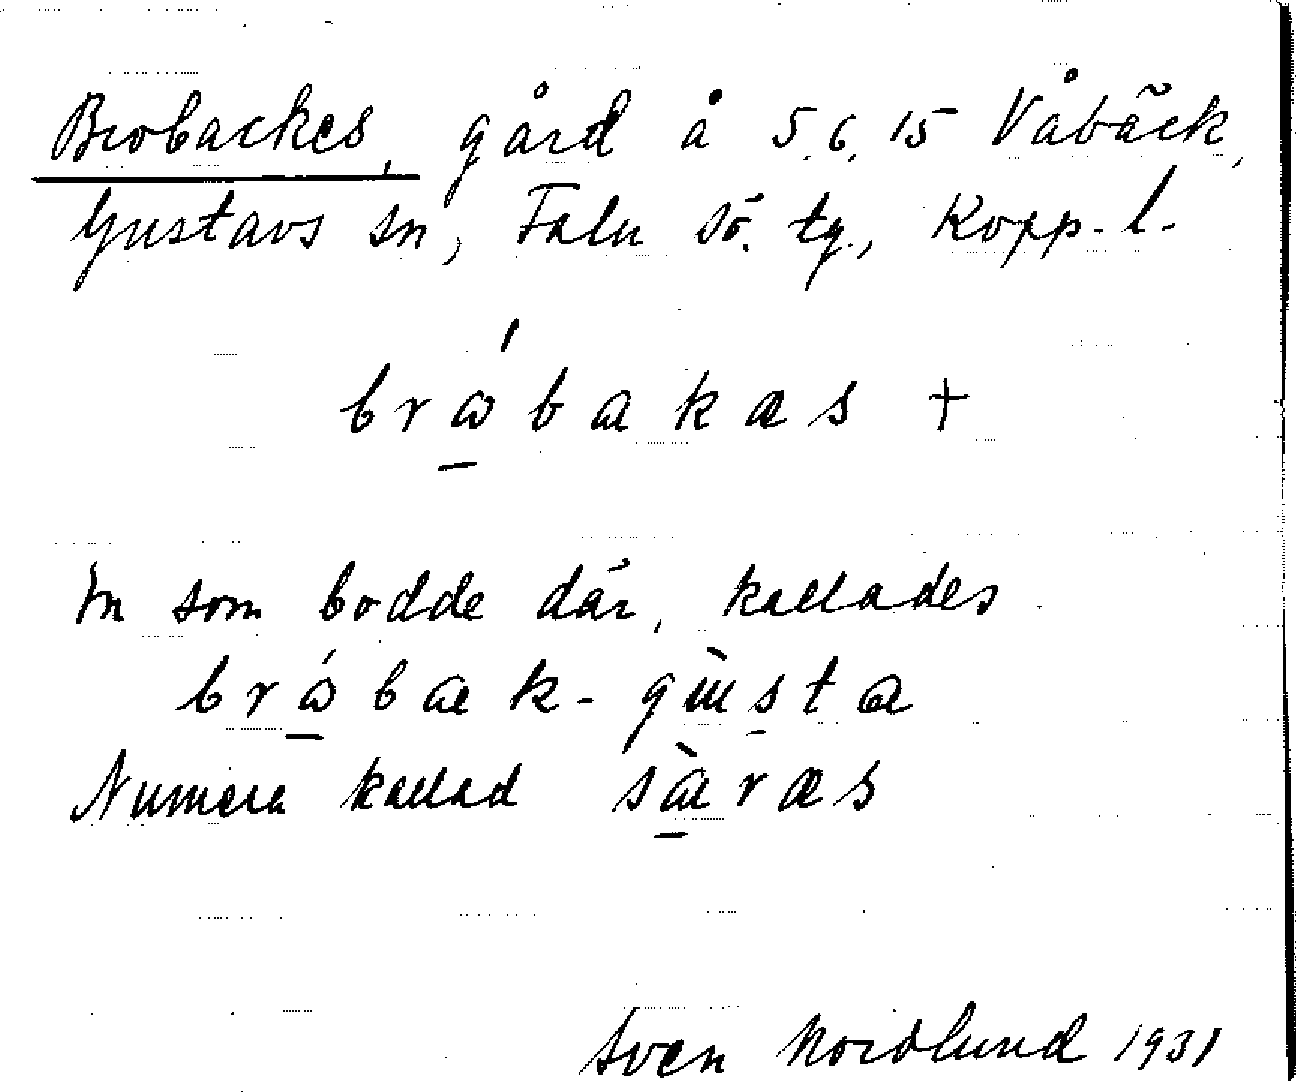 Brobackes, gård å 5.6.15 Våbäck,
Gustavs sn, Falu sö. tg., Kopp. l.
brώ̲bakæs +
En som bodde där, kallades
brώ̲bak-gùsta
Numera kallad sà̲ræs
Sven Nordlund 1931